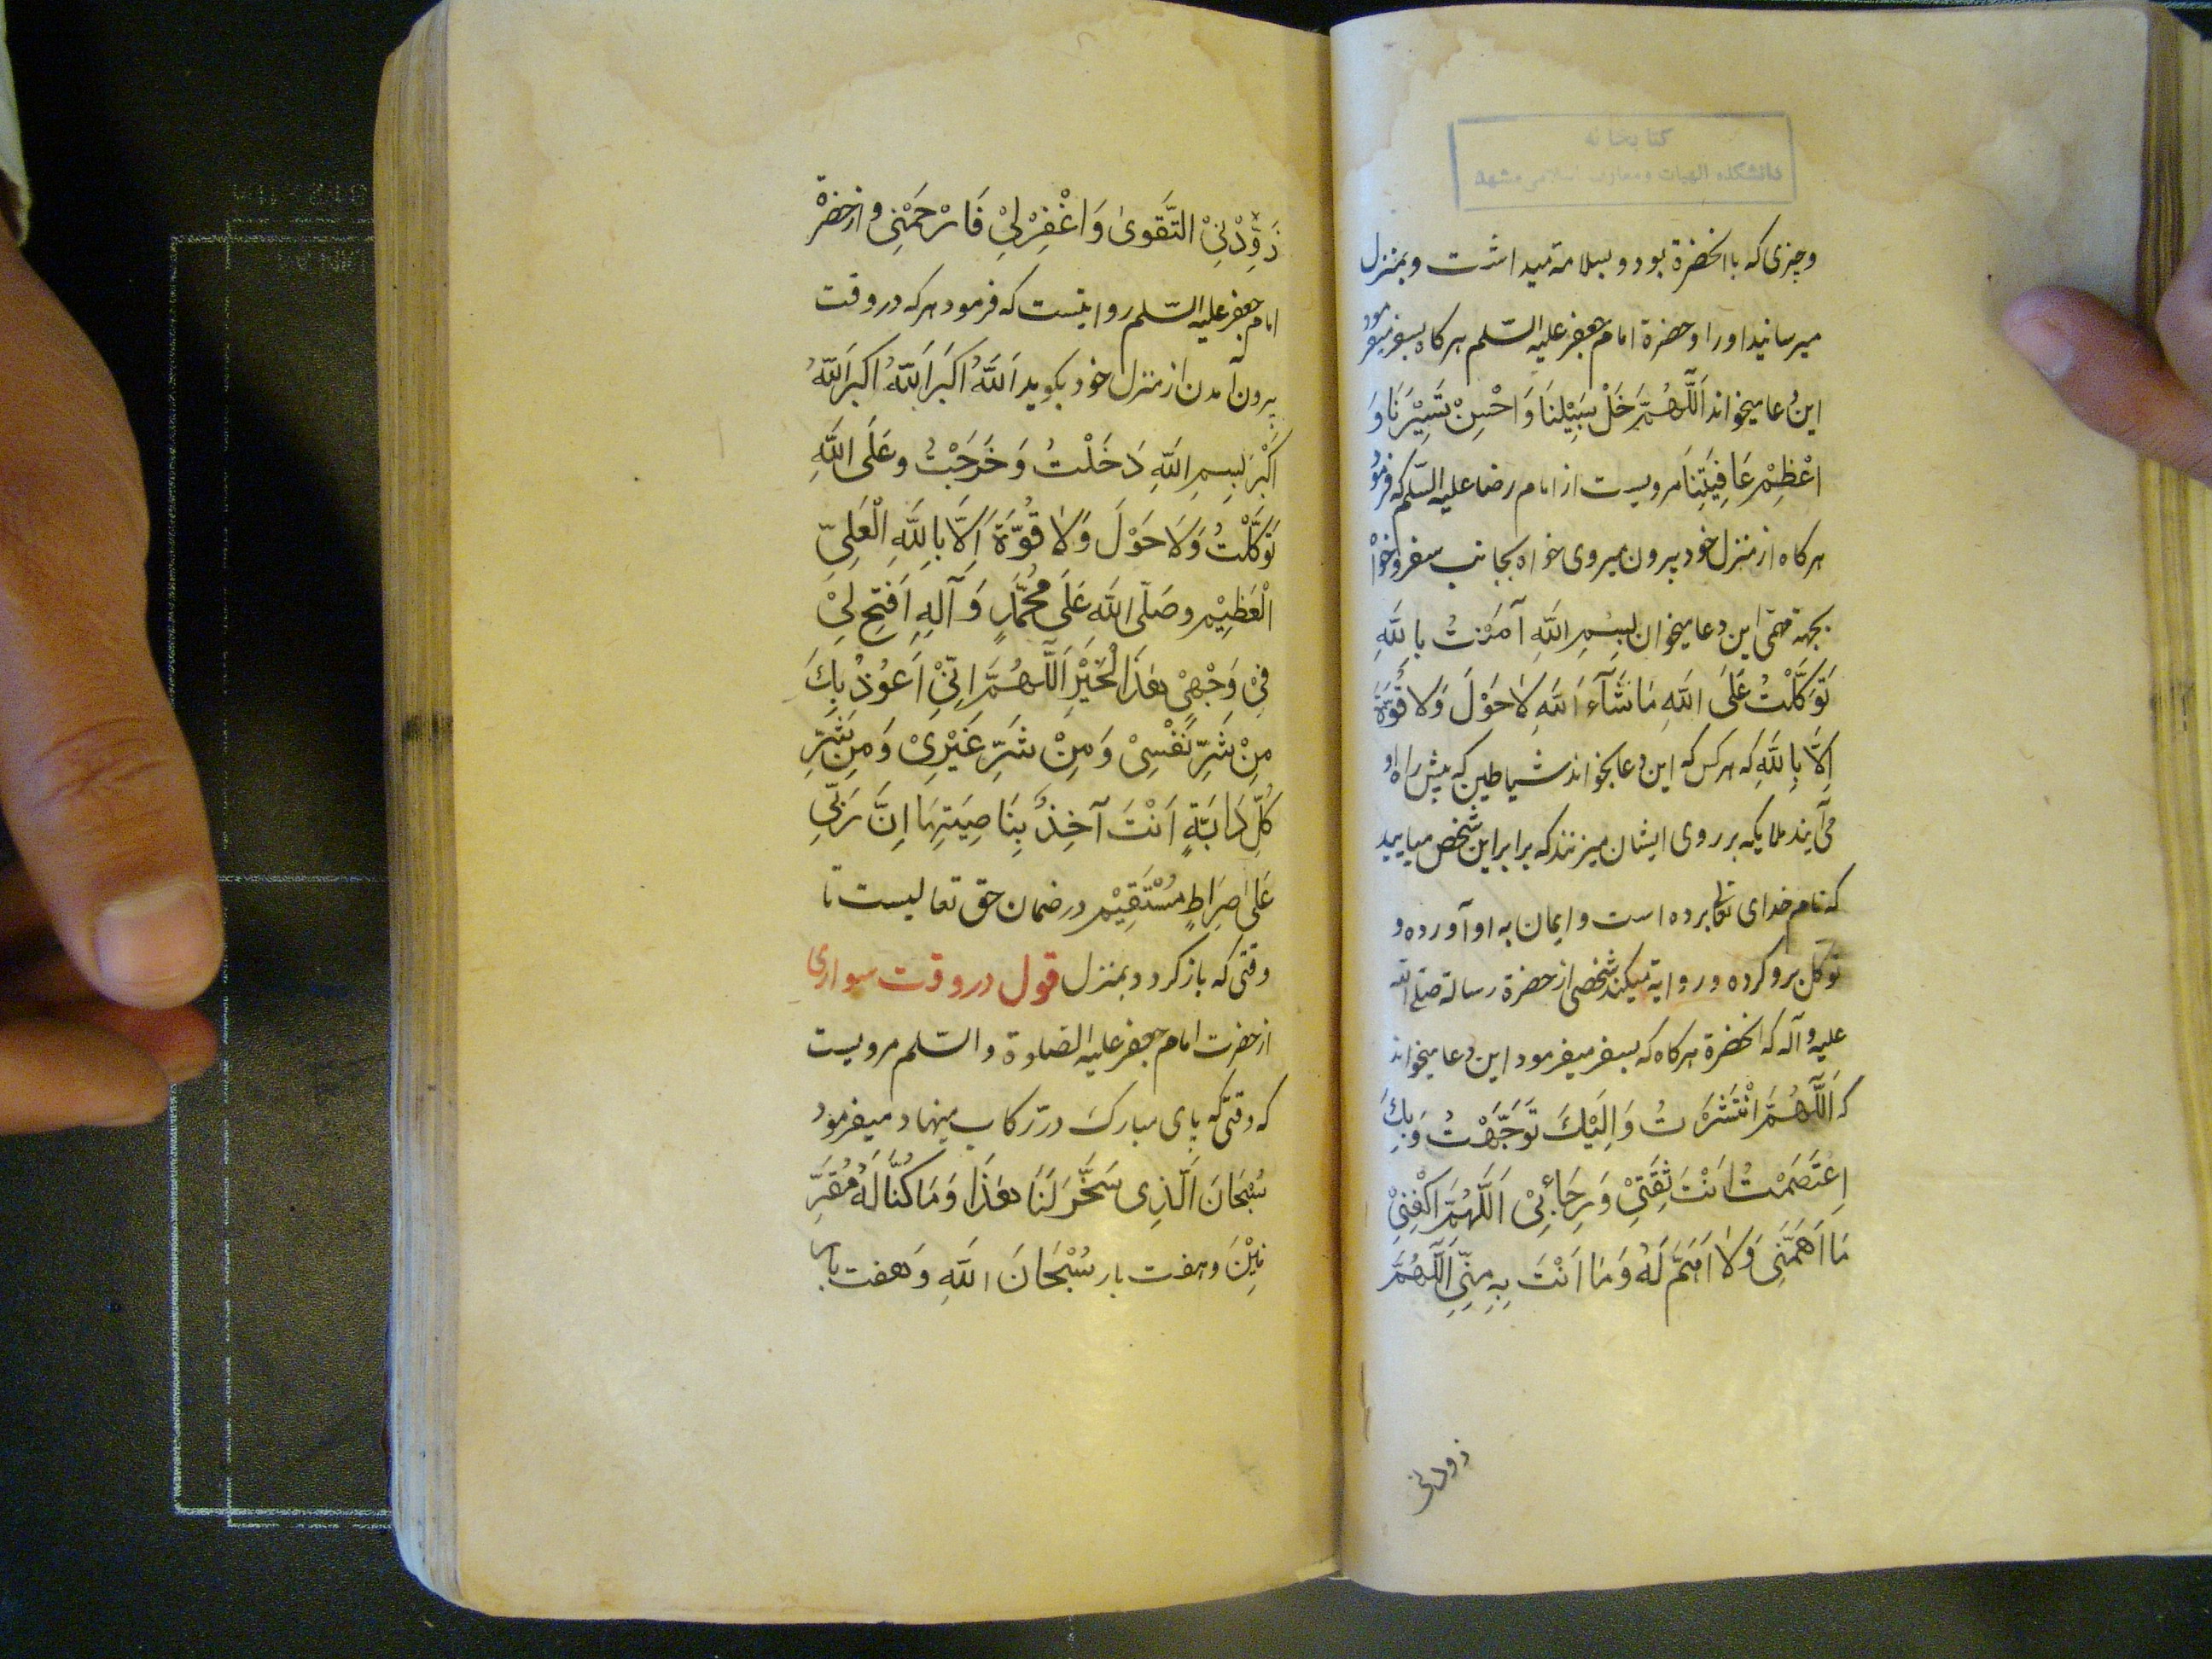 کتابخانه
دانشکده الهیات و معارف اسلامی مشهد
وچیزی که با انحضرة بود و بسلامة میداشت و بمنزل
میرسانید اورا و حضرة امام جعفر علیه السّلم هرکاه بسفر میفرمود
این دعا میخواند اَللّهُمَّ خَلِّ سَبِیْلَنَا وَ احْسِنْ تَسْیِیْرَنَا وَ
اعْظِمْ عَافِیَتِنَا مرویست از امام رضا علیه السّلم که فرمود
هرکاه از منزل خود بیرون میروی خواه بجانب سفر و خواه
بجهة مهمّی این دعا میخوان بِسْمِ اللّهِ آمَنْتُ بِاللّهِ
تَوَکَّلْتُ عَلَی اللّهِ مَاشَآءَ اللّهِ لَاحَوْلَ وَلَا قُوَّةَ
اِلَّا بِاللّهِ که هرکس که این دعا بخواند شیاطین که پیش راه او
می آیند ملایکه بر روی ایشان میزنند که برابر این شخص میایید
که نام خدای تعا برده است و ایمان به او آورده و
توکل برو کرده و روایة میکند شخصی از حضرة رسالة صلی الله
علیه و آله که انحضرة هرکاه که بسفر میفرمود این دعا میخواند
که اَللّهُمَّ انْتَشَرْتُ وَ اِلَیْكَ تَوَجَّهْتُ وَ بِكَ
اِعْتَصَمْتُ اَنْتَ ثِقَتِیْ وَ رِجَائِیْ اَللّهُمَّ اکْفِنِیْ
مَا اَهَمَّنِی وَلَا اَهَمَّ لَهُ وَمَا اَنْتَ بِهِ مِنِّی اَللّهُمَّ
زودنی
زَوِّدْنِیْ التَّقْوی وَ اغْفِرْلِیْ فَارْحَمْنِی و از حضرة
امام جعفر علیه السّلم روایتست که فرمود هرکه در وقت
بیرون آمدن از منزل خود بکوید اَللّهُ اَکْبَر اَللّهُ اَکْبَر اَللّهُ
اَکْبَر بِسمِ اللّهِ دَخَلْتُ وَ خَرَجْتُ و عَلَی اللّهِ
تَوَکَّلْتُ وَلَا حَوْلَ وَلَا قُوَّةَ اِلَّا بِاللّهِ الْعَلِیّ
الْعَظِیْم و صَلّی اللّهِ عَلَی مُحَمَّدٍ وَ آلِهِ اَفْتَحِ لِیْ
فِیْ وَجْهِیْ هذَا الْخَیْرِ اَللّهُمَّ اِنِّیْ اَعُوْذُ بِكَ
مِنْ شَرِّ نَفْسِیْ وَ مِنْ شَرِّ غَیْرِیْ وَ مِن شَرِّ
کُلِّ دَابَّةٍ اَنْتَ آخِذُ بِنَاصِیَتِهَا اِنَّ رَبِّی
عَلی صِرَاطٍ مُسْتَقِیْمِ در ضمان حق تعالیست تا
وقتی که باز کردد بمنزل قول در وقت سواری
از حضرت امام جعفر علیه الصّلوة و السّلم مرویست
که وقتی که پای مبارک در رکاب مینهاد میفرمود
سُبْحَانَ الَّذِی سَخَّرَ لَنَا هذَا وَ مَا کُنَّا لَهُ مُقْرَ
نِیْنَ و هفت بار سُبْحَانَ اللّهِ وَ هفت بار